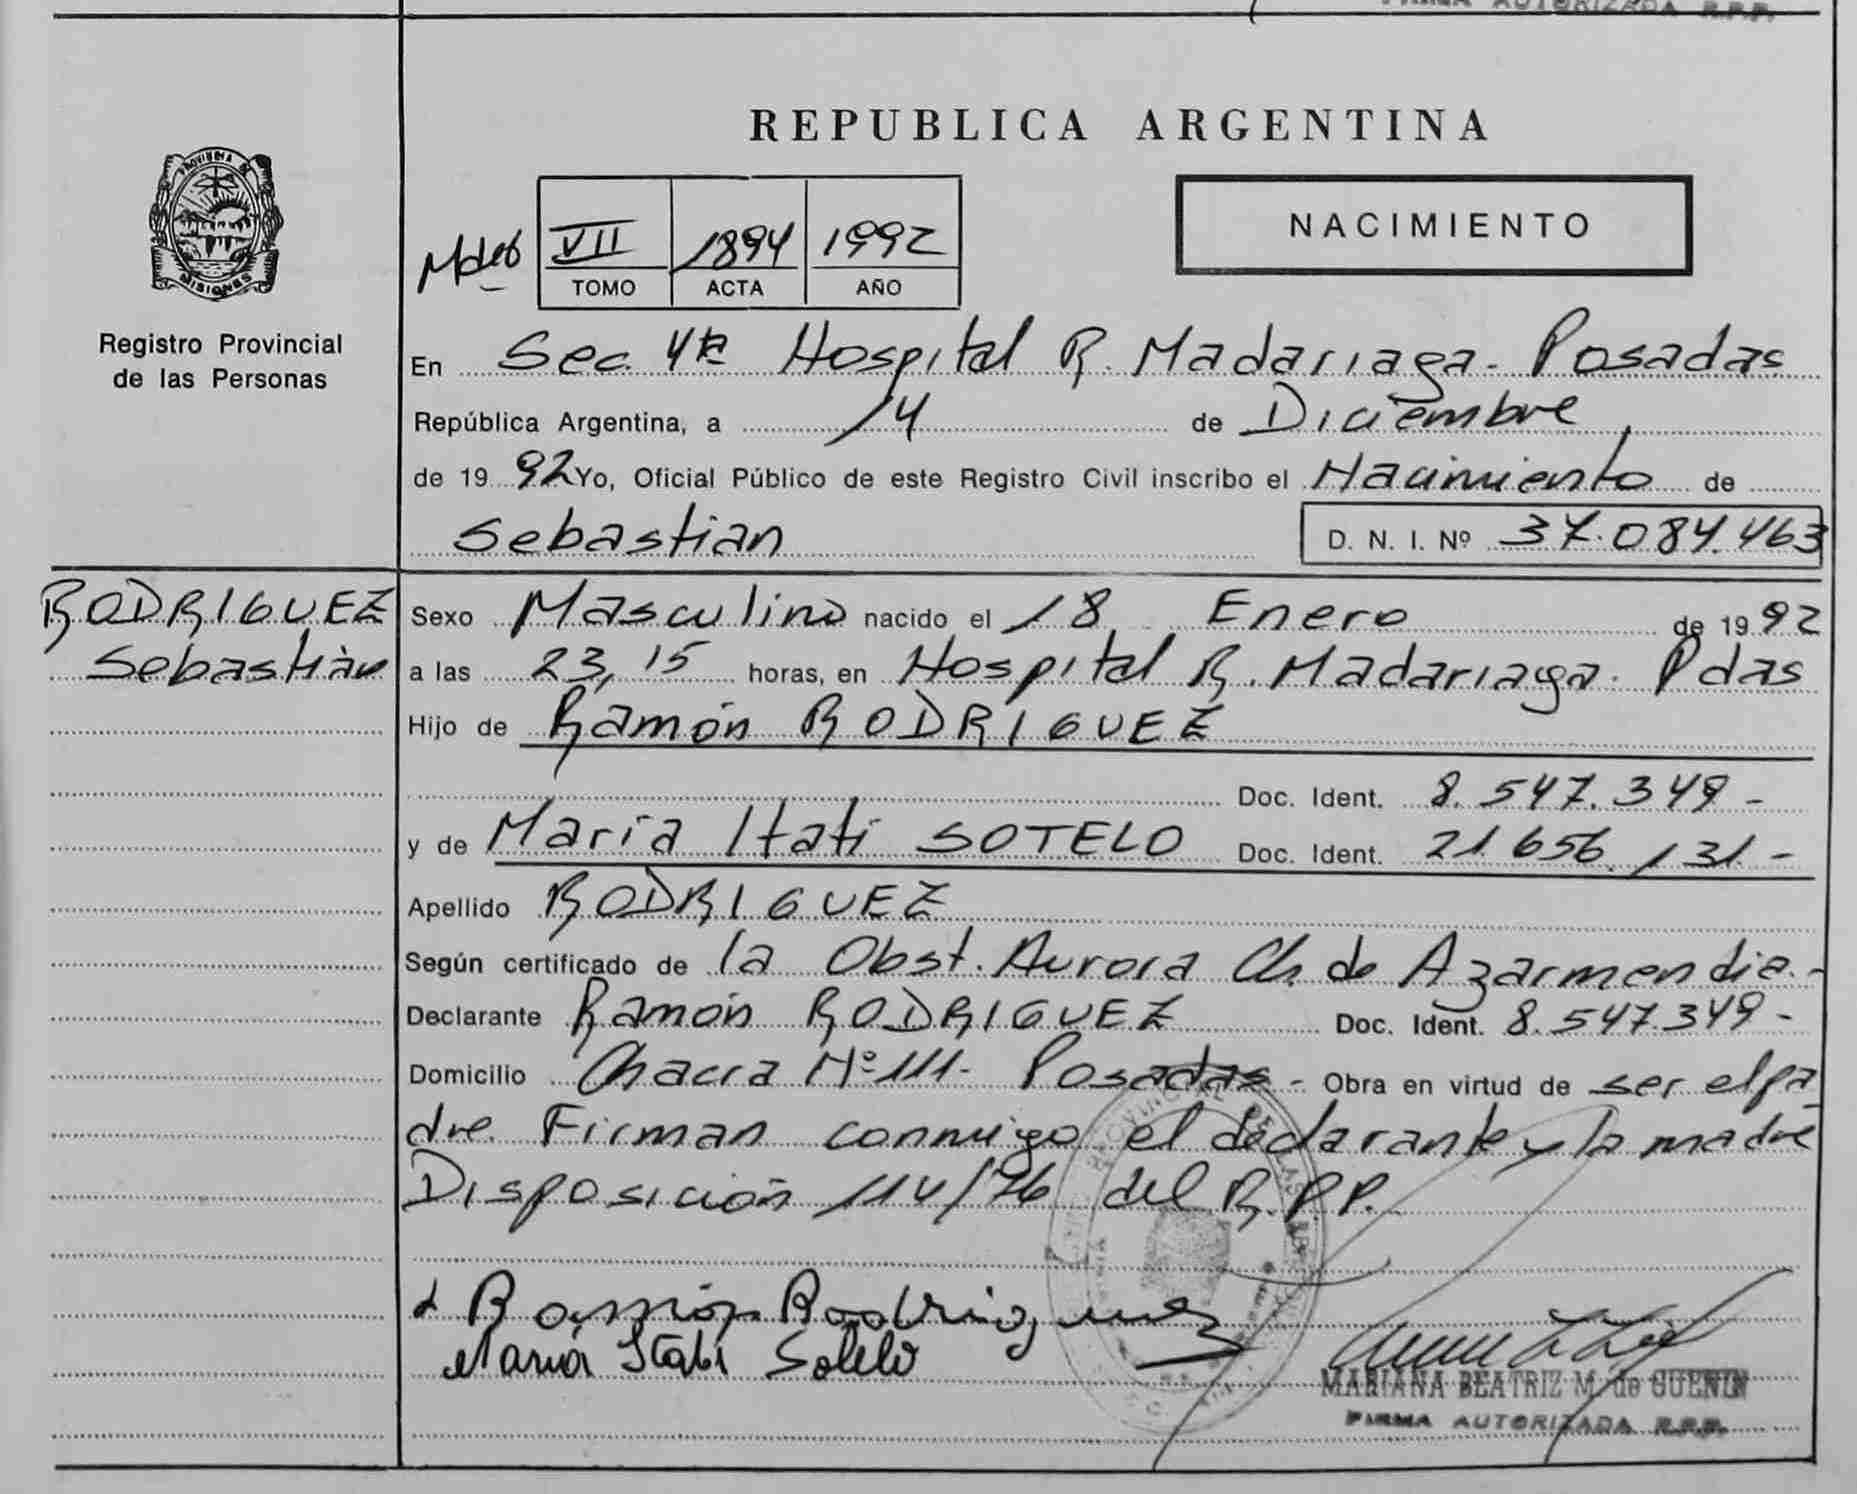 FIRMA AUTORIZADA R.P.P.
REPUBLICA ARGENTINA
PROVINCIA DE
MISIONES
Registro Provincial
de las Personas
VII 1894 1992
TOMO ACTA AÑO
NACIMIENTO
En Sec. 4ta Hospital R. Madariaga - Posadas
República Argentina, a 14 de Diciembre
de 1992 Yo, Oficial Público de este Registro Civil inscribo el Nacimiento de
Sebastian D. N. I. Nº 37.084.463
RODRIGUEZ
Sebastián
Sexo Masculino nacido el 18 Enero de 1992
a las 23,15 horas, en Hospital R. Madariaga. Pdas
Hijo de Ramón RODRIGUEZ
Doc. Ident. 8.547.349-
y de María Itati SOTELO Doc. Ident. 21.656.131-
Apellido RODRIGUEZ
Según certificado de la Obst. Aurora Ch. de Azarmendia.-
Declarante Ramón RODRIGUEZ Doc. Ident. 8.547.349-
Domicilio Chacra Nº 111- Posadas - Obra en virtud de ser el pa
dre. Firman conmigo el declarante y la madre
Disposición 114/76 del R.P.P.
Ramón Rodriguez
María Itati Sotelo
MARIANA BEATRIZ M. de GUENIN
FIRMA AUTORIZADA R.P.P.